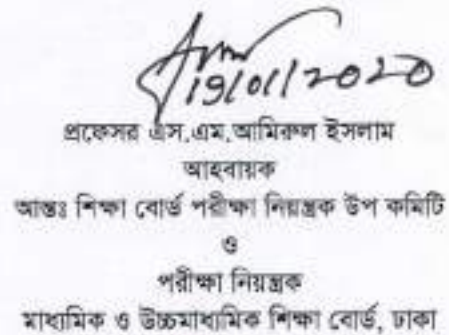 19/01/2020
প্রফেসর এস.এম.আমিরুল ইসলাম
আহবায়ক
আন্তঃ শিক্ষা বোর্ড পরীক্ষা নিয়ন্ত্রক উপ কমিটি
ও
পরীক্ষা নিয়ন্ত্রক
মাধ্যমিক ও উচ্চমাধ্যমিক শিক্ষা বোর্ড, ঢাকা